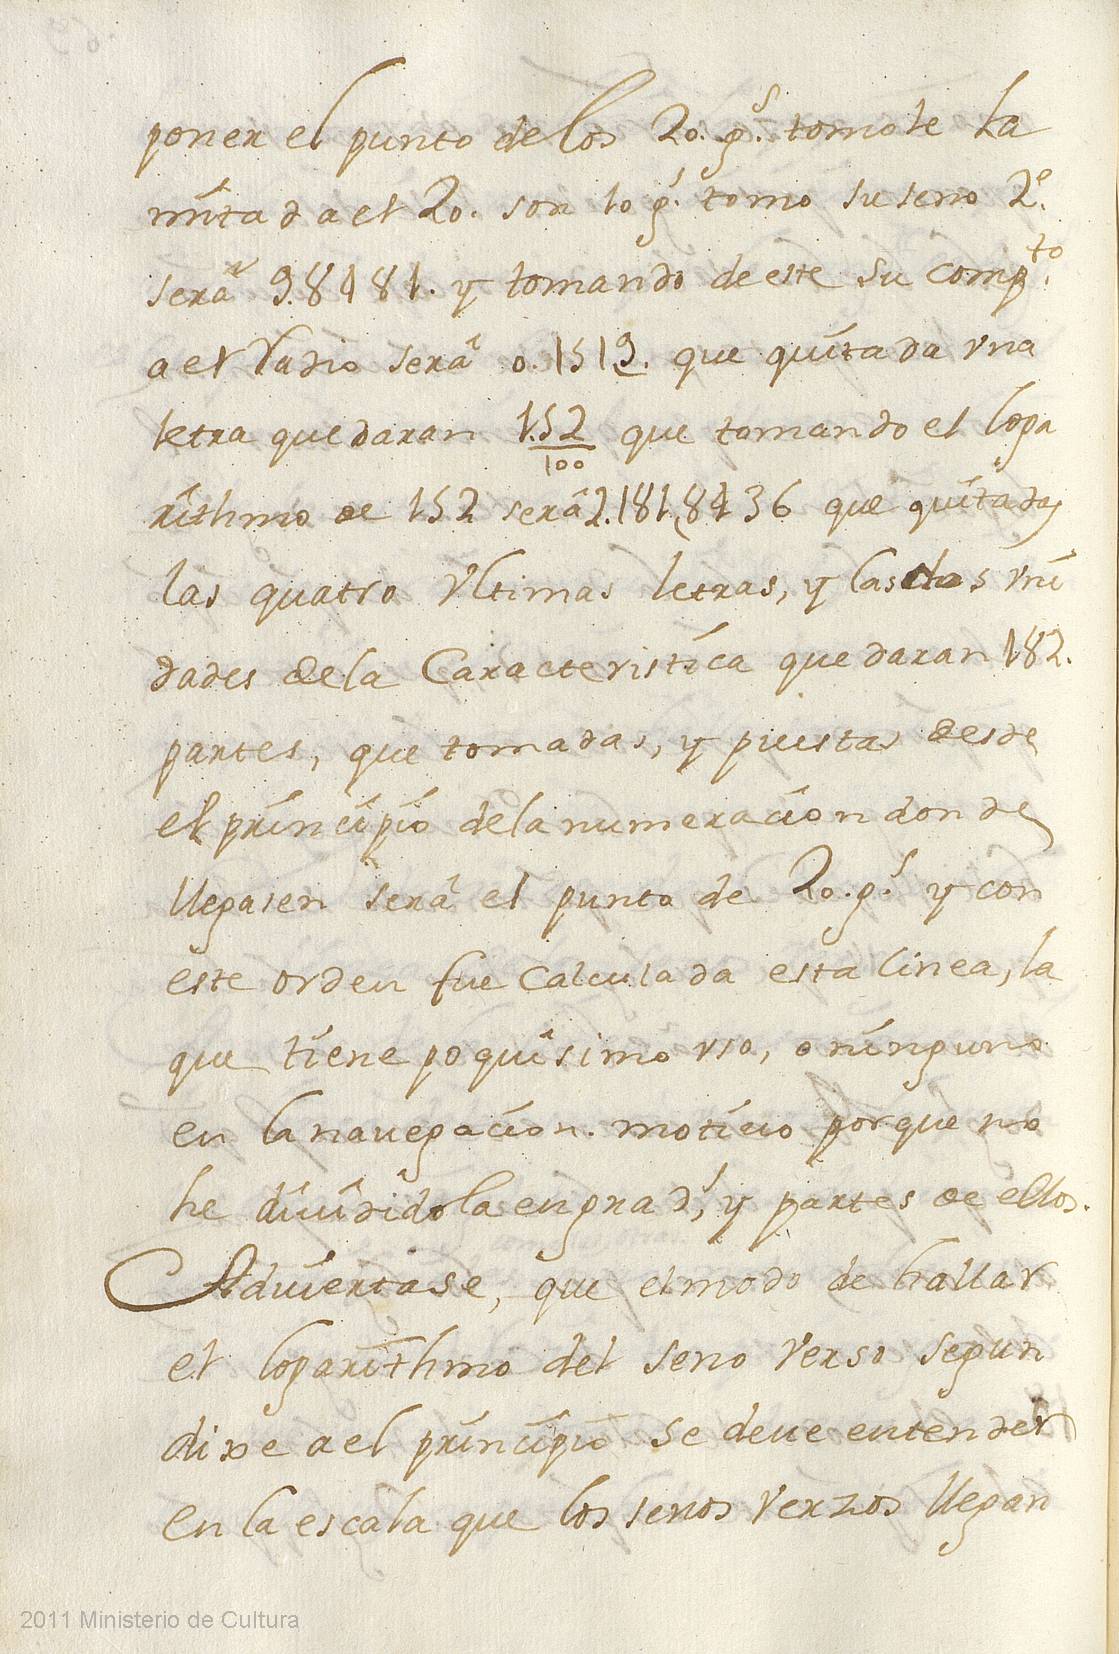 poner el punto de los 20. g.s tomole la
mita d a el 20. son 10 g.s tomo su seno 2.o
será 9.8481. y tomando de este su comp.to
a el Radio será 0.1519. que quitada vna
letra quedaran 1.52/100 que tomando el loga
rithmo de 152 será 2.181,8436 que quitadas
las quatro vltimas letras, y las dos vni
dades de la Caracteristica quedaran 182.
partes, que tomadas, y puestas desde
el principio de la numeracion donde
llegasen será el punto de 20. g.s y con
este orden fue Calculada esta linea, la
que tiene poquisimo vso, o ninguno
en la nauegacion. motiuo porque no
he diuidido la en grad.s, y partes de ellos.
Aduiertase, que el modo de hallar
el logarithmo del seno verso segun
dixe a el principio se deue entender
en la escala que los senos verzos llegan
2011 Ministerio de Cultura